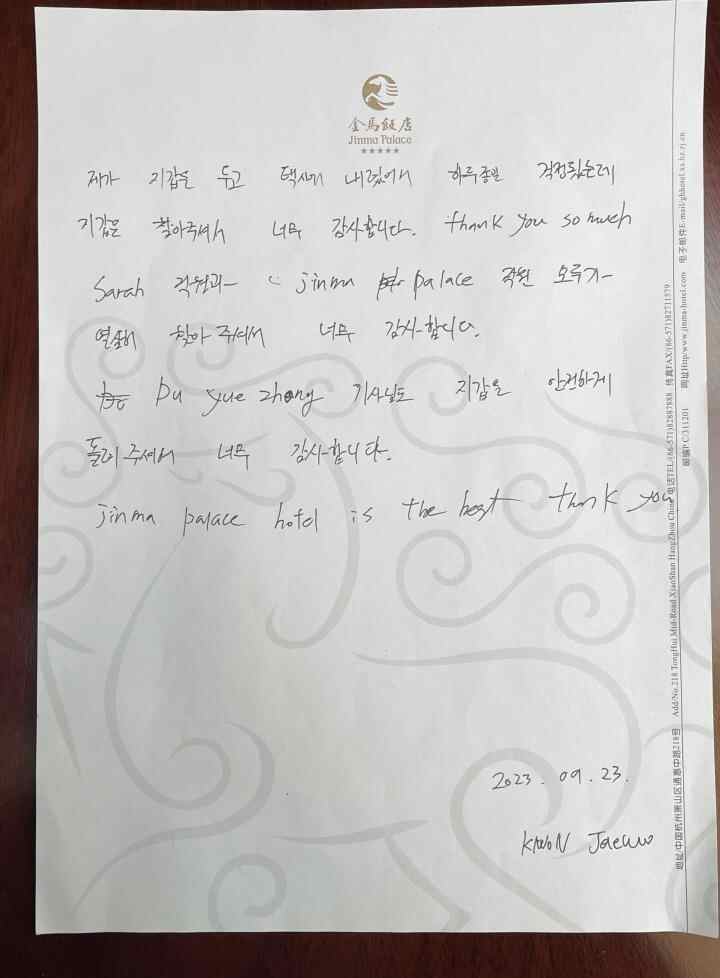 金馬飯店
Jinma Palace
★★★★★
제가 지갑을 두고 택시에 내렸어서 하루종일 걱정됬는데
지갑을 찾아주셔서 너무 감사합니다. thank you so much
Sarah 직원과 jinma palace 직원 모두가
열심히 찾아 주셔서 너무 감사합니다.
Du yue zhong 기사님도 지갑을 안전하게
돌려주셔서 너무 감사합니다.
jinma palace hotel is the best thank you
2023.09.23.
KWON Jaewoo
地址/中国杭州萧山区通惠中路218号 Add/No.218 TongHui Mid-Road XiaoShan HangZhou China 电话TEL/(86-571)82887888 传真FAX/(86-571)82711579
邮编P.C/311201 网址Http/www.jinma-hotel.com 电子邮件E-mail/ghhotel.xs.hz.zj.cn